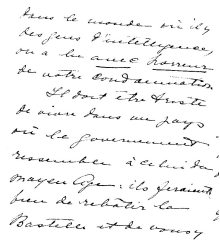 dans le monde où il y
des gens d'intelligence,
on a lu avec horreur
de notre condamnation
Il doit être triste
de vivre dans un pays
où le gouvernement
ressemble à celui du
moyen age : ils feraient
bien de rebâtir la
Bastille et de